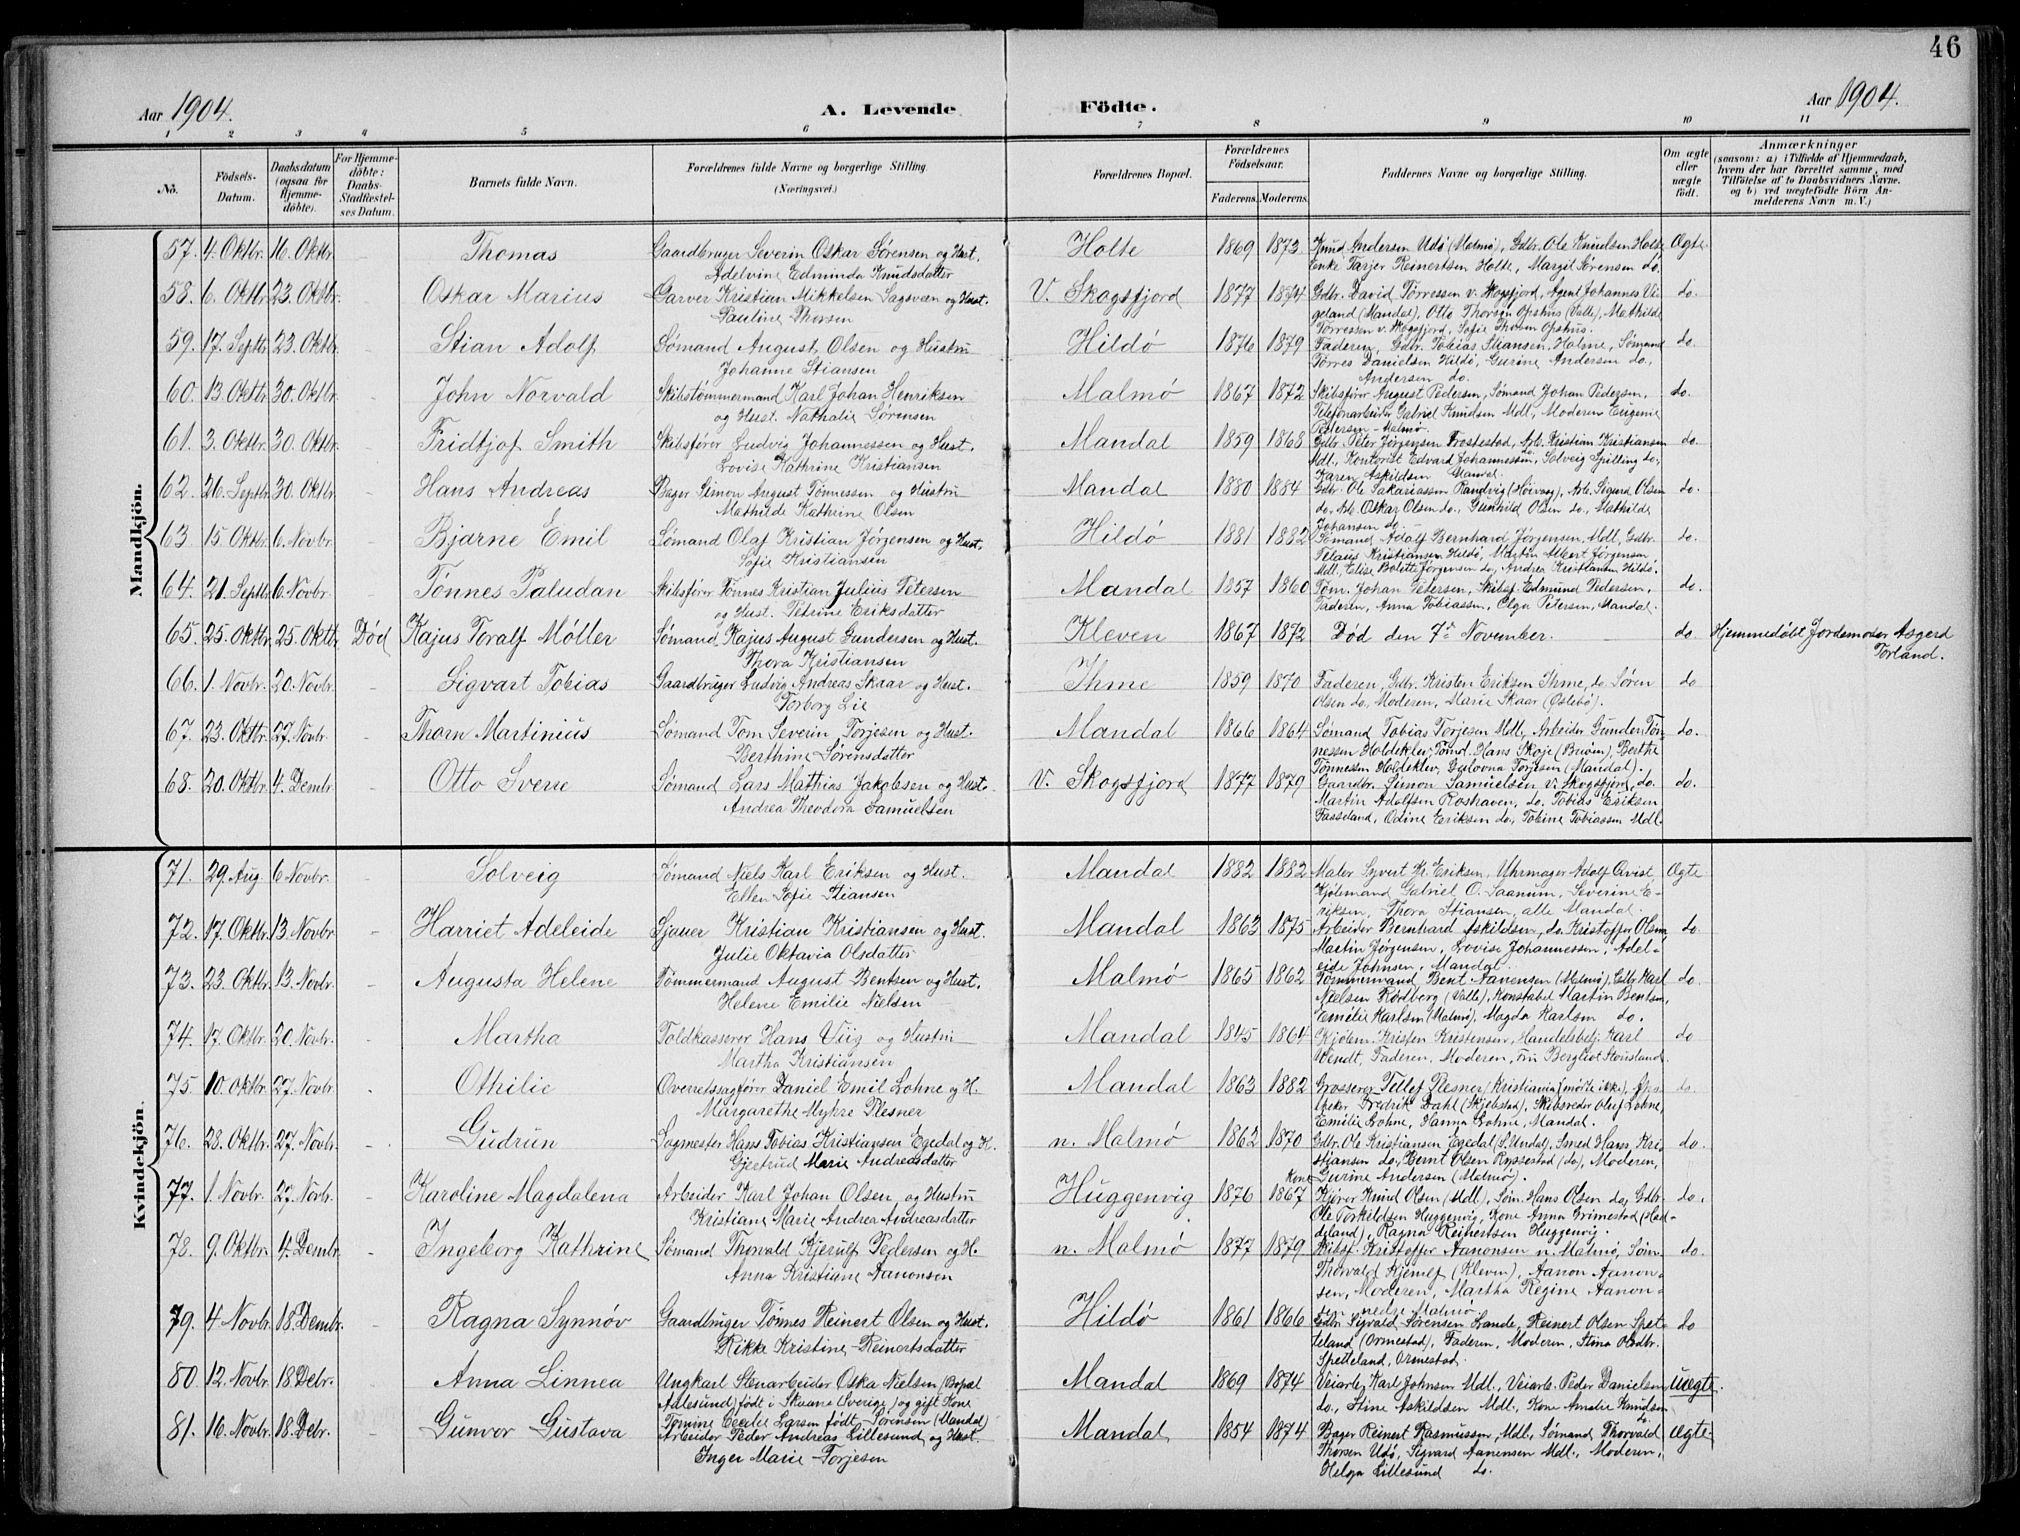 46
Aar 1904. A. Levende Födte. Aar 1904.
1 2 3 4 5 6 7 8 9 10 11
No. Födsels-Datum. Daabsdatum (ogsaa for Hjemme-döbte). For Hjemme-döbte: Daabs-Stadfæstel-ses Datum. Barnets fulde Navn. Forældrenes fulde Navne og borgerlige Stilling. (Næringsvei.) Forældrenes Bopæl. Forældrenes Födselsaar. Faderens. Moderens. Faddernes Navne og borgerlige Stilling. Om ægte eller uægte födt. Anmærkninger (saasom: a) i Tilfælde af Hjemmedaab, hvem der har forrettet samme, med Tilföielse af to Daabsvidners Navne, og b) ved uægtefödte Börn An-melderens Navn m. V.)
Mandkjön.
57. 4. Oktbr. 16. Oktbr. Thomas Gaardbruger Severin Oskar Sørensen og Hust. Holte 1869 1873 Knud Andersen Udø (Malmø), Gdbr. Ole Knudsen Holte, Ægte
Adelvine Edminda Knudsdatter Enke Tarjer Reinertsen Holte, Margit Sørensen do.
58. 6. Oktbr. 23. Oktbr. Oskar Marius Garver Kristian Mikkelsen Sagsveen og Hust. V. Skogsfjord 1877 1874 Gdbr. David Tørressen v. Skogsfjord, Agent Johannes Vi- do.
Pauline Thorsen geland (Mandal), Otto Thorsen Opshus (Valle), Mathilde
Tørressen v. Skogsfjord, Sofie Thorsen Opshus.
59. 17. Septbr. 23. Oktbr. Stian Adolf Sømand August Olsen og Hustru Hildø 1876 1879 Faderen, Gdbr. Tobias Stiansen Holme, Sømand do.
Johanne Stiansen Tørres Danielsen Hildø, Gurine Andersen do.,
Andersen do.
60. 13. Oktbr. 30. Oktbr. John Norvald Skibstømmermand Karl Johan Henriksen Malmø 1867 1872 Skibsfør. August Pedersen, Sømand Johan Pedersen, do.
og Hust. Nathalie Sørensen Telefonarbeider Gabriel Knudsen Mdl., Moderen, Eugenie
Petersen - Malmø.
61. 3. Oktbr. 30. Oktbr. Fridtjof Smith Skibsfører Ludvig Johannessen og Hust. Mandal 1859 1868 Gdbr. Peter Jørgensen Frostestad, Arb. Kristian Kristiansen do.
Lovise Kathrine Kristiansen Mdl., Kontorist Edvard Johannessen do., Solveig Spilling do.,
Karen Askildsen Mandal.
62. 26. Septbr. 30. Oktbr. Hans Andreas Bager Simon August Tønnessen og Hustru Mandal 1880 1884 Gdbr. Ole Sakariassen Randvig (Høivaag), Arb. Sigurd Olsen do.
Mathilde Kathrine Olsen do., Arb. Oskar Olsen do., Gunhild Olsen do., Mathilde
Johansen do.
63. 15. Oktbr. 6. Novbr. Bjarne Emil Sømand Olaf Kristian Jørgensen og Hust. Hildø 1881 1882 Sømand Adolf Bernhard Jørgensen, Mdl., Gdbr. do.
Sofie Kristiansen Kristiansen Hildø, Martin Albert Jørgensen
Mdl., Elise Bolette Jørgensen do., Andrea Kristiansen Hildø.
64. 21. Septbr. 6. Novbr. Tønnes Paludan Skibsfører Tønnes Kristian Julius Petersen Mandal 1857 1860 Tøm. Johan Petersen, Skibsf. Edmund Pedersen, do.
og Hust. Petrine Eriksdatter Faderen, Anna Tobiassen, Olga Petersen, Mandal.
65. 25. Oktbr. 25. Oktbr. Død Kajus Toralf Møller Sømand Kajus August Gundersen og Hust. Kleven 1867 1872 Død den 7de November. do. Hjemmedøbt Jordemoder Asgerd
Thora Kristiansen Torland.
66. 1. Novbr. 20. Novbr. Sigvart Tobias Gaardbruger Ludvig Andreas Skaar og Hust. Ihme 1859 1870 Faderen, Gdbr. Kristen Eriksen Ihme, do. Søren do
Torborg Lie Olsen do., Moderen, Marie Skaar (Øslebø).
67. 23. Oktbr. 27. Novbr. Thorn Martinius Sømand Tom Severin Torjesen og Hust. Mandal 1866 1864 Sømand Tobias Torjesen Mdl., Arbeider Gunder Tøn- do.
Berthine Sørensdatter nessen Holdeklev, Tømd. Hans Skoje (Buøen), Berthe
Tønnessen Holdeklev, Torjesen (Mandal).
68. 20. Oktbr. 4. Dembr. Otto Sverre Sømand Lars Mathias Jakobsen og Hust. V. Skogsfjord 1877 1879 Gaardbr. Simon Samuelsen v. Skogsfjord, do. do.
Andrea Theodora Samuelsen Martin Adolfsen Roshaven, do. Tobias Eriksen
Fasseland, Odine Eriksen do., Tobine Tobiassen Mdl.
Kvindekjön.
71. 29. Aug. 6. Novbr. Solveig Sømand Niels Karl Eriksen og Hust. Mandal 1882 1882 Maler Syvert Kr. Eriksen, Uhrmager Adolf Qvist Ægte
Ellen Sofie Stiansen Kjølemand Gabriel O. Saanum, Severine E-
riksen, Thora Stiansen, alle Mandal.
72. 17. Oktbr. 13. Novbr. Harriet Adeleide Sjauer Kristian Kristiansen og Hust. Mandal 1863 1875 Arbeider Bernhard Askildsen, do. Kristoffer Olsen, do.
Julie Oktavia Olsdatter Martin Jørgensen, Lovise Johannessen, Adel-
eide Johnsen, Mandal.
73. 23. Oktbr. 13. Novbr. Augusta Helene Tømmermand August Bentsen og Hust. Malmø 1865 1862 Tømmermand Bent Aanensen (Malmø), Gdbr. Karl do.
Helene Emilie Nielsen Nielsen Rødberg (Valle), Konstabel Martin Bentsen,
Emilie Karlsen (Malmø), Magda Karlsen do.
74. 17. Oktbr. 20. Novbr. Martha Toldkasserer Hans Viig og Hustru Mandal 1845 1864 Kjølem. Kristen Kristensen, Handelsbetj. Karl do
Martha Kristiansen Wendt, Faderen, Moderen, Frk. Bergliot Stousland.
75. 10. Oktbr. 27. Novbr. Othilie Overretssagfører Daniel Emil Lohne og H. Mandal 1863 1882 Grosserer Tellef Plesner (Kristiania) mødte ikke), Apo- do.
Margarethe Myhre Plesner theker Fredrik Dahl (Skjebstad), Skibsreder Oluf Lohne,
Emilie Lohne, Hanna Lohne, Mandal.
76. 28. Oktbr. 27. Novbr. Gudrun Sagmester Hans Tobias Kristiansen Egedal og H. n. Malmø 1862 1870 Gdbr. Ole Kristiansen Egedal (S. Undal), Smed Hans Kri- do.
Gjertrud Marie Andreasdatter stjansen do., Bernt Olsen Ryssestad (do), Moderen,
Kone Gurine Andersen (Malmø).
77. 1. Novbr. 27. Novbr. Karoline Magdalena Arbeider Karl Johan Olsen og Hustru Huggenvig 1876 1867 Kjører Knud Olsen (Mdl.), Søm. Hans Olsen do., Gdbr. do.
Kristiane Marie Andrea Andreasdatter Ole Torkildsen Huggenvig, Kone Anna Grimestad (Had-
deland), Ragna Reinertsen Huggenvig.
78. 9. Oktbr. 4. Dembr. Ingeborg Kathrine Sømand Thorvald Kjerulf Pedersen og H. n. Malmø 1877 1879 Skibsf. Kristoffer Aanonsen n. Malmø, Søm. do.
Anna Kristiane Aanonsen Thorvald Kjerulf (Kleven), Aanon Aanon-
sen, Moderen, Martha Regine Aanon-
sen nedre Malmø.
79. 4. Novbr. 18. Dembr. Ragna Synnøv Gaardbruger Tønnes Reinert Olsen og Hust. Hildø 1861 1866 Gdbr. Sigvald Sørensen Lande, Reinert Olsen Spet- do
Rikke Kristine Reinertsdatter teland (Ormestad), Faderen, Moderen, Stina Olsdtr.
Spetteland, Ormestad.
80. 12. Novbr. 18. Debr. Anna Linnea Ungkarl Stenarbeider Oska Nielsen (Bopæl Mandal 1869 1874 Veiarb. Karl Johnsen Mdl., Veiarb. Peder Danielsen Uægte.
Adlesund) født i Skaane Sverige) og gift Kone do., Stine Askildsen Mdl., Kone Amalie Knudsen
Tomine Cecilie Larsen født Sørensen (Mandal) do.
81. 16. Novbr. 18. Debr. Gunvor Gustava Arbeider Peder Andreas Lillesund og Hust. Mandal 1854 1874 Bager Reinert Rasmussen, Mdl., Sømand Thorvald Ægte
Inger Marie Torjesen Thorsen Udø, Sigvard Aanensen Mdl., Moderen,
Helga Lillesund do.